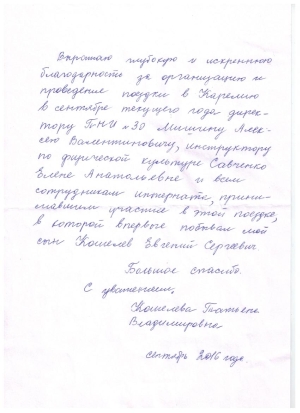 Выражаю глубокую и искреннюю
благодарность за организацию и
проведение поездки в Карелию
в сентябре текущего года дирек-
тору ПНИ №30 Мишину Алек-
сею Валентиновичу, инструктору
по физической культуре Савченко
Елене Анатольевне и всем
сотрудникам интерната, прини-
мавшим участие в этой поездке,
в которой впервые побывал мой
сын Кошелев Евгений Сергеевич
Большое спасибо.
С уважением,
Кошелева Татьяна
Владимировна
сентябрь 2016 года.